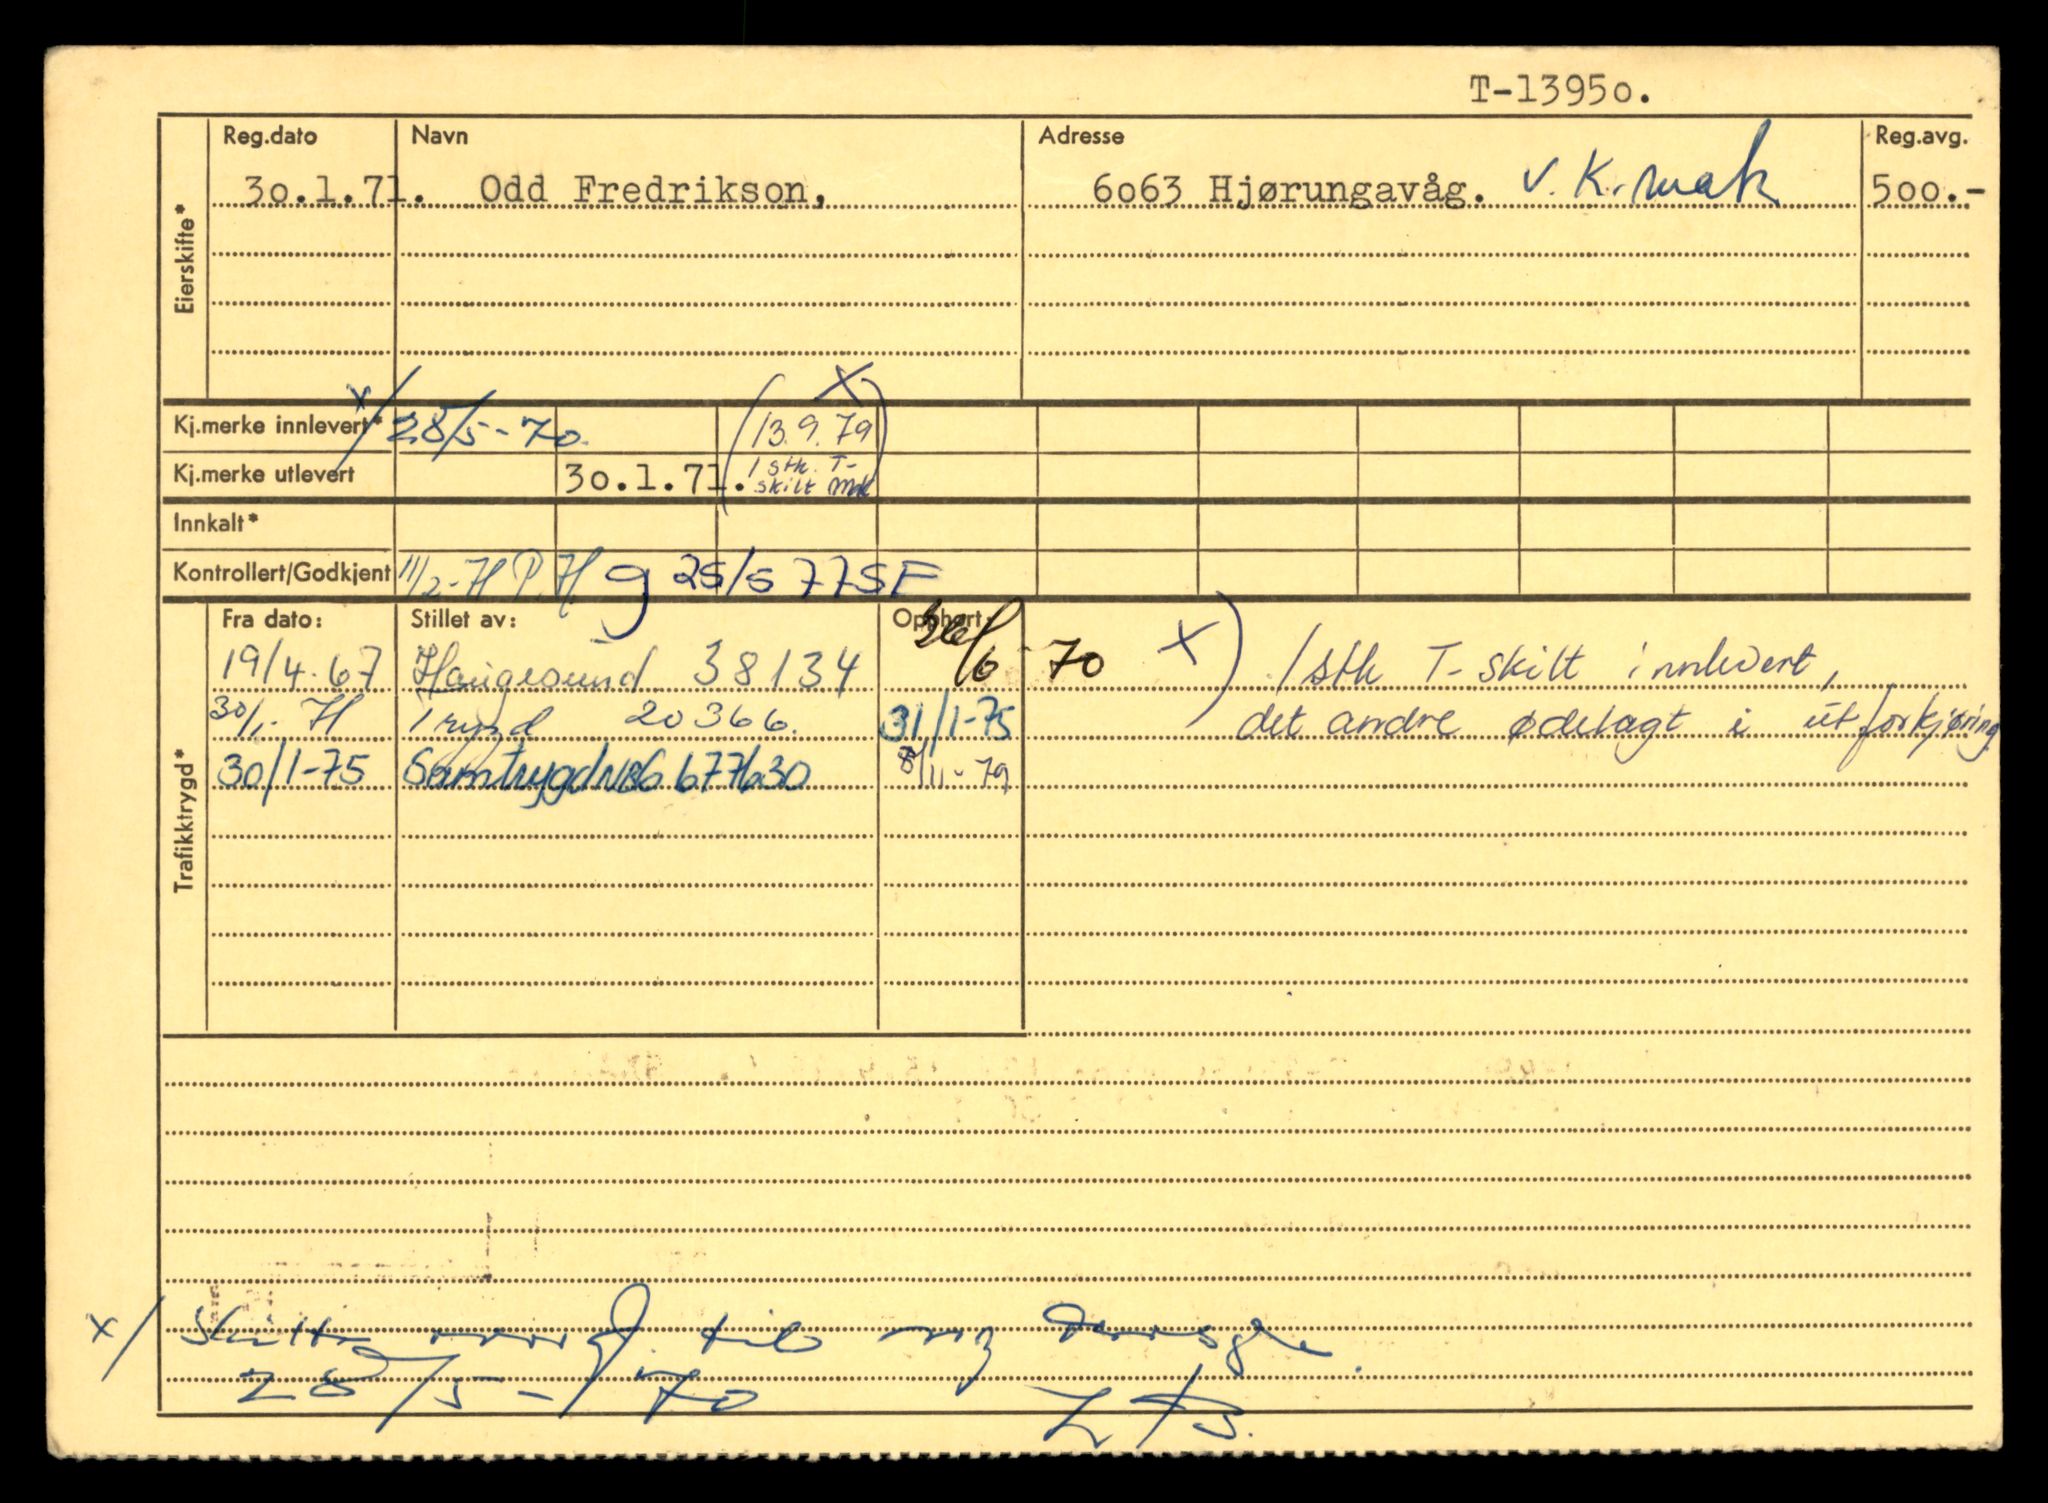 T-13950.
Reg.dato Navn Adresse Reg.avg.
30.1.71. Odd Fredrikson, 6063 Hjørungavåg. V. K. 500.-
Eierskifte*
x/
Kj.merke innlevert* 28/5-70. (13.9.79) X
Kj.merke utlevert 30.1.71. 1 stk. T-
skilt
Innkalt*
Kontrollert/Godkjent 11/2-71 P.H g 25/5 77 SF
Trafikktrygd*
Fra dato: Stillet av: Opphørt:
19/4-67 Haugesund 38134 26/6 70
30/1-71 Trygd 20366. 31/1-75
30/1-75 Samtrygd 677630 8/11-79
X) 1 stk T-skilt innlevert,
det andre ødelagt i utforkjøring
x/ Skilter til
28/5-70